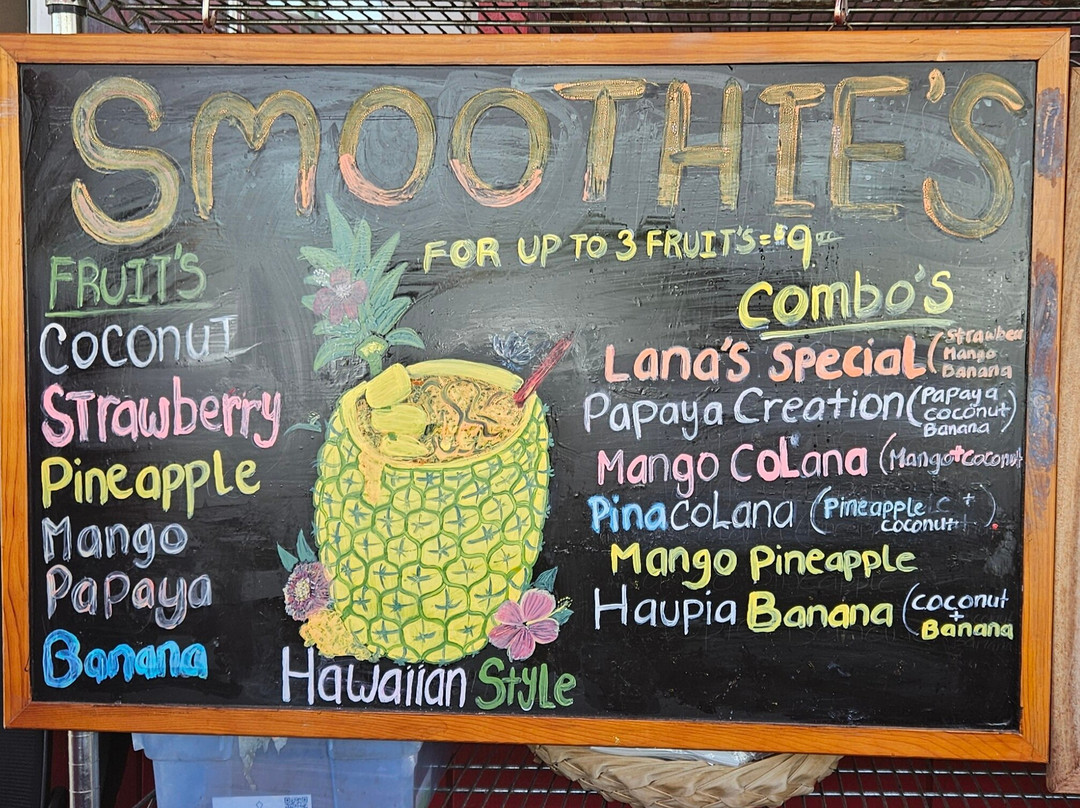 SMOOTHIE'S
FOR UP TO 3 FRUIT'S = $9.00
FRUIT'S
COCONUT
Strawberry
Pineapple
Mango
Papaya
Banana
Hawaiian Style
Combo's
Lana's Special (Strawber
Mango
Banana
Papaya Creation (Papaya
coconut)
Banana
Mango CoLana (Mango+coconut
PinacoLana (Pineapple +
coconut)
Mango Pineapple
Haupia Banana (coconut
+
Banana